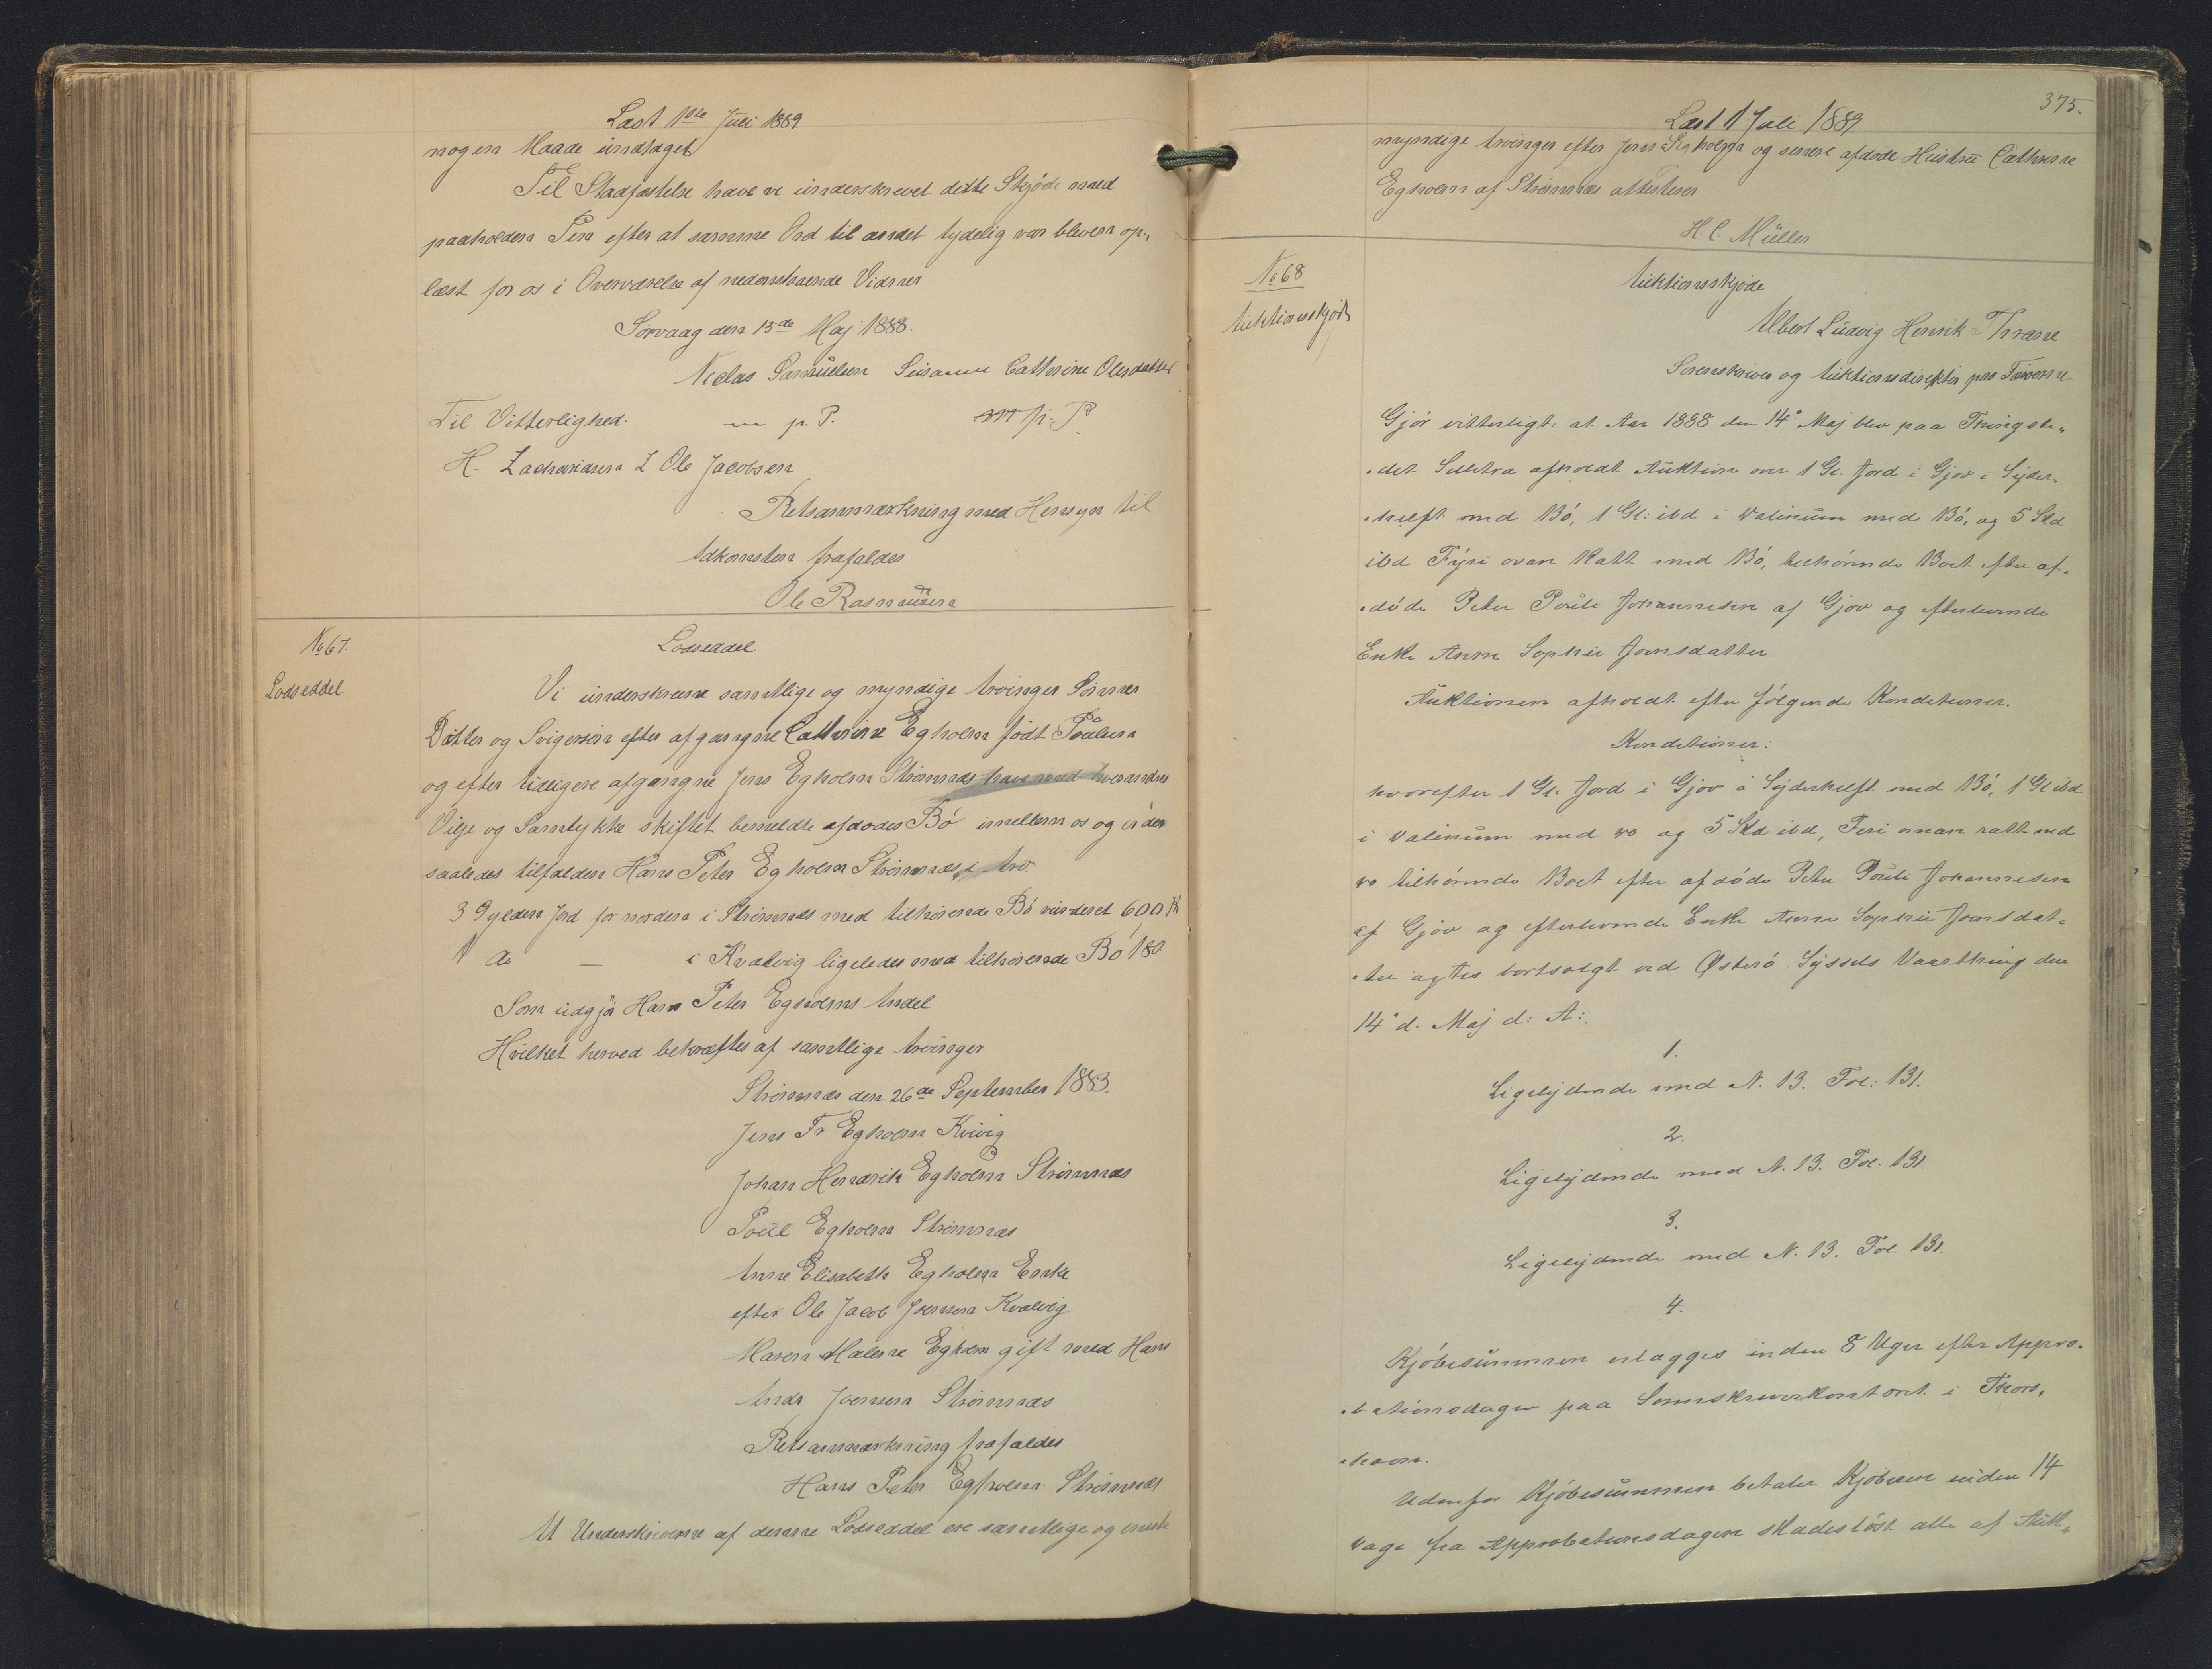 Læst 1ste Juli 1889.
nogen Maade undtaget
Til Stadfæstelse have vi underskrevet dette Skjøde med
paaholden Pen efter at samme Ord til andet tydelig var bleven op-
læst for os i Overværelse af nedenstaaende Vidner
Sørvaag den 15de Maj 1888.
Niclas Samuelsen Susanne Cathrine Olesdatter
Til Vitterlighed. m p. P. m p. P
H. Zachariasen Z Ole Jacobsen
Retsanmærkning med Hensyn til
Adkomsten frafaldes
Ole Rasmussen
No 67.
Lodseddel
Lodseddel
Vi underskrevne samtlige og myndige Arvinger Sønner
Datter og Svigersøn efter afgangne Cathrine Egholm født Poulsen
og efter tidligere afgangne Jens Egholm Strømnæs have med hverandres
Vilje og Samtykke skiftet bemeldte afdødes Bó imellem os og er den
saaledes tilfalden Hans Peter Egholm Strømnæs i Arv.
3 Gylden Jord for norden i Strømnæs med tilhørende Bó vurderet 600 K
1 do — i Kvalvig ligeledes med tilhørende Bó 180
Som udgjør Hans Peter Egholms Andel
Hvilket herved bekræftes af samtlige Arvinger
Strømnæs den 26de September 1883.
Jens Fr Egholm Kvivig
Johan Hendrik Egholm Strømnæs
Poul Egholm Strømnæs
Anne Elisabeth Egholm Enke
efter Ole Jacob Joensen Kvalvig
Maren Malene Egholm gift med Hans
Andr Joensen Strømnæs
Retsanmærkning frafaldes
Hans Peter Egholm Strømnæs
At Underskriverne af denne Lodseddel ere samtlige og eneste
375.
Læst 1 Juli 1889
myndige Arvinger efter Jens Egholm og senere afdøde Hustru Cathrine
Egholm af Strømnæs attesterer
H. C. Müller
No 68
Auktionsskjøde
Auktionsskjøde
Albert Ludvig Henrik Thrane
Sorenskriver og Auktionsdirektør paa Færøerne
Gjør vitterligt: at Aar 1888 den 14de Maj blev paa Thingste-
det Selletra afholdt Auktion over 1 Gl. Jord i Gjov i Syder-
helft med Bó, 1 Gl. ibd i Valinum med Bó, og 5 Skd
ibd Fyri ovan Ratt med Bó, tilhørende Boet efter af-
døde Peter Pouli Johannesen af Gjov og efterlevende
Enke Anne Sophie Joensdatter.
Auktionen afholdt efter følgende Konditioner.
Konditioner:
hvorefter 1 Gl. Jord i Gjov i Syderhelft med Bó, 1 Gl ibd
i Valinum med vo og 5 Skd ibd, Firi oman ratt med
vo tilhørende Boet efter afdøde Peter Pouli Johannesen
af Gjov og efterlevende Enke Anne Sophie Joensdat-
ter agtes bortsolgt ved Østerø Syssels Vaarthing den
14de d. Maj d: A:.
1.
Ligelydende med N. 13. Fol: 131.
2.
Ligelydende med N. 13. Fol. 131.
3.
Ligelydende med N. 13. Fol. 131.
4.
Kjøbesummen erlægges inden 8 Uger efter Appro-
bationsdagen paa Sorenskriverkontoret i Thors-
havn.
Udenfor Kjøbesummen betaler Kjøberen inden 14
Dage fra Approbationsdagen skadesløst alle af Auk-